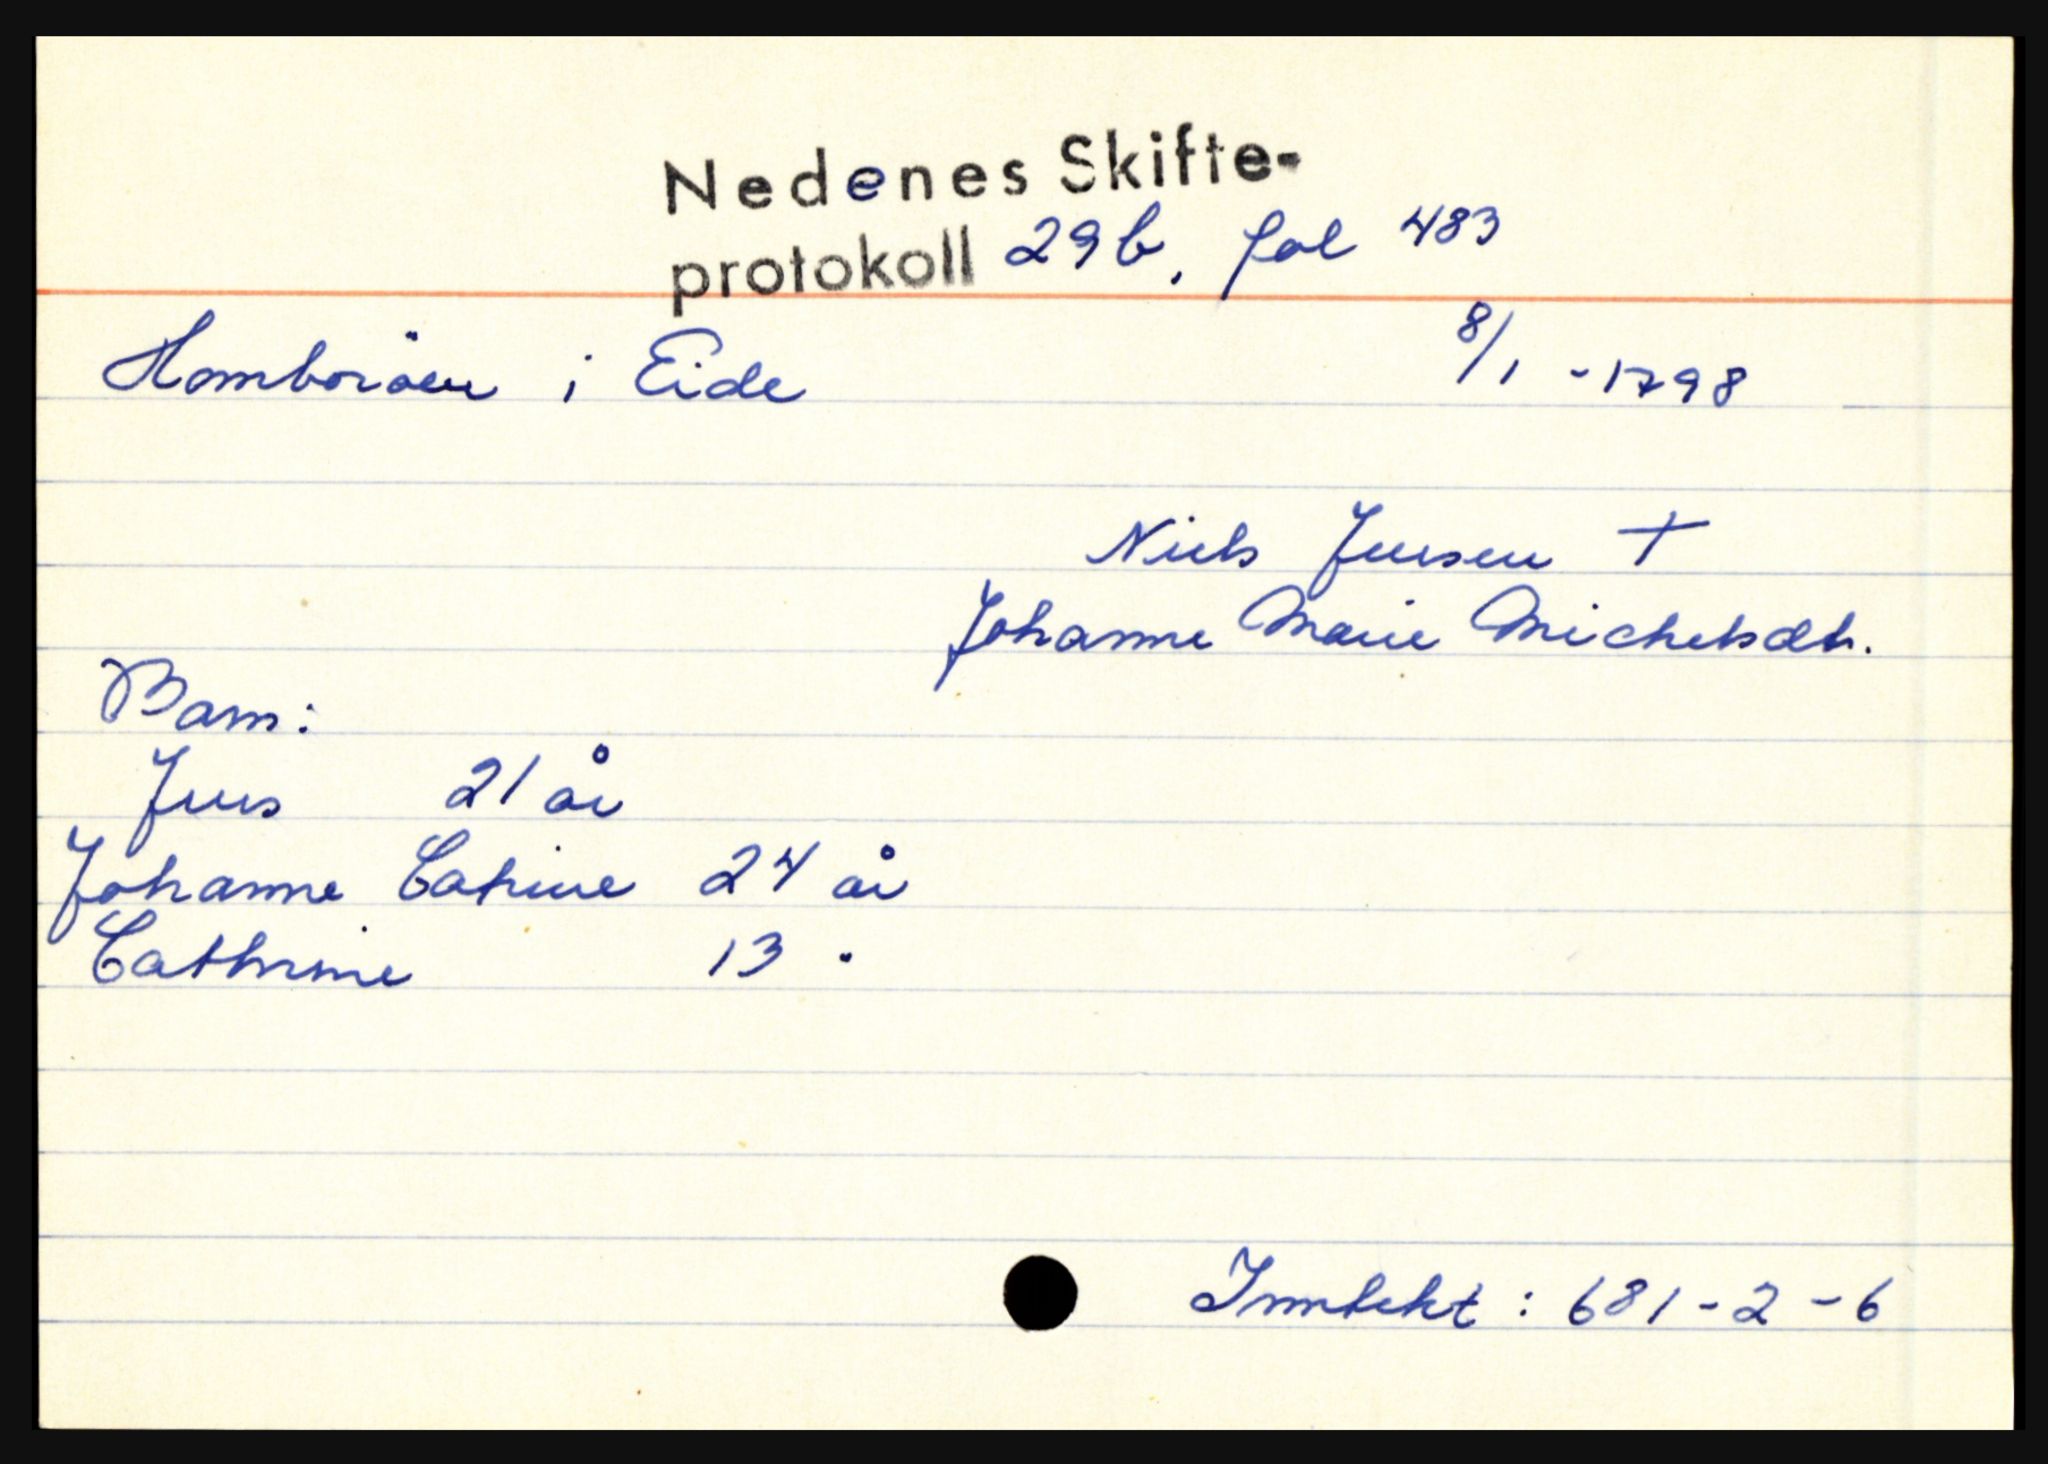 Nedenes Skifte-
protokoll 29b, fol 483
Homborøen i Eide 8/1 - 1798
Niels Jensen †
Johanne Marie Michelsdtr.
Barn:
Jens 21 år
Johanne Catrine 24 år
Cathrine 13 "
Inntekt : 681-2-6